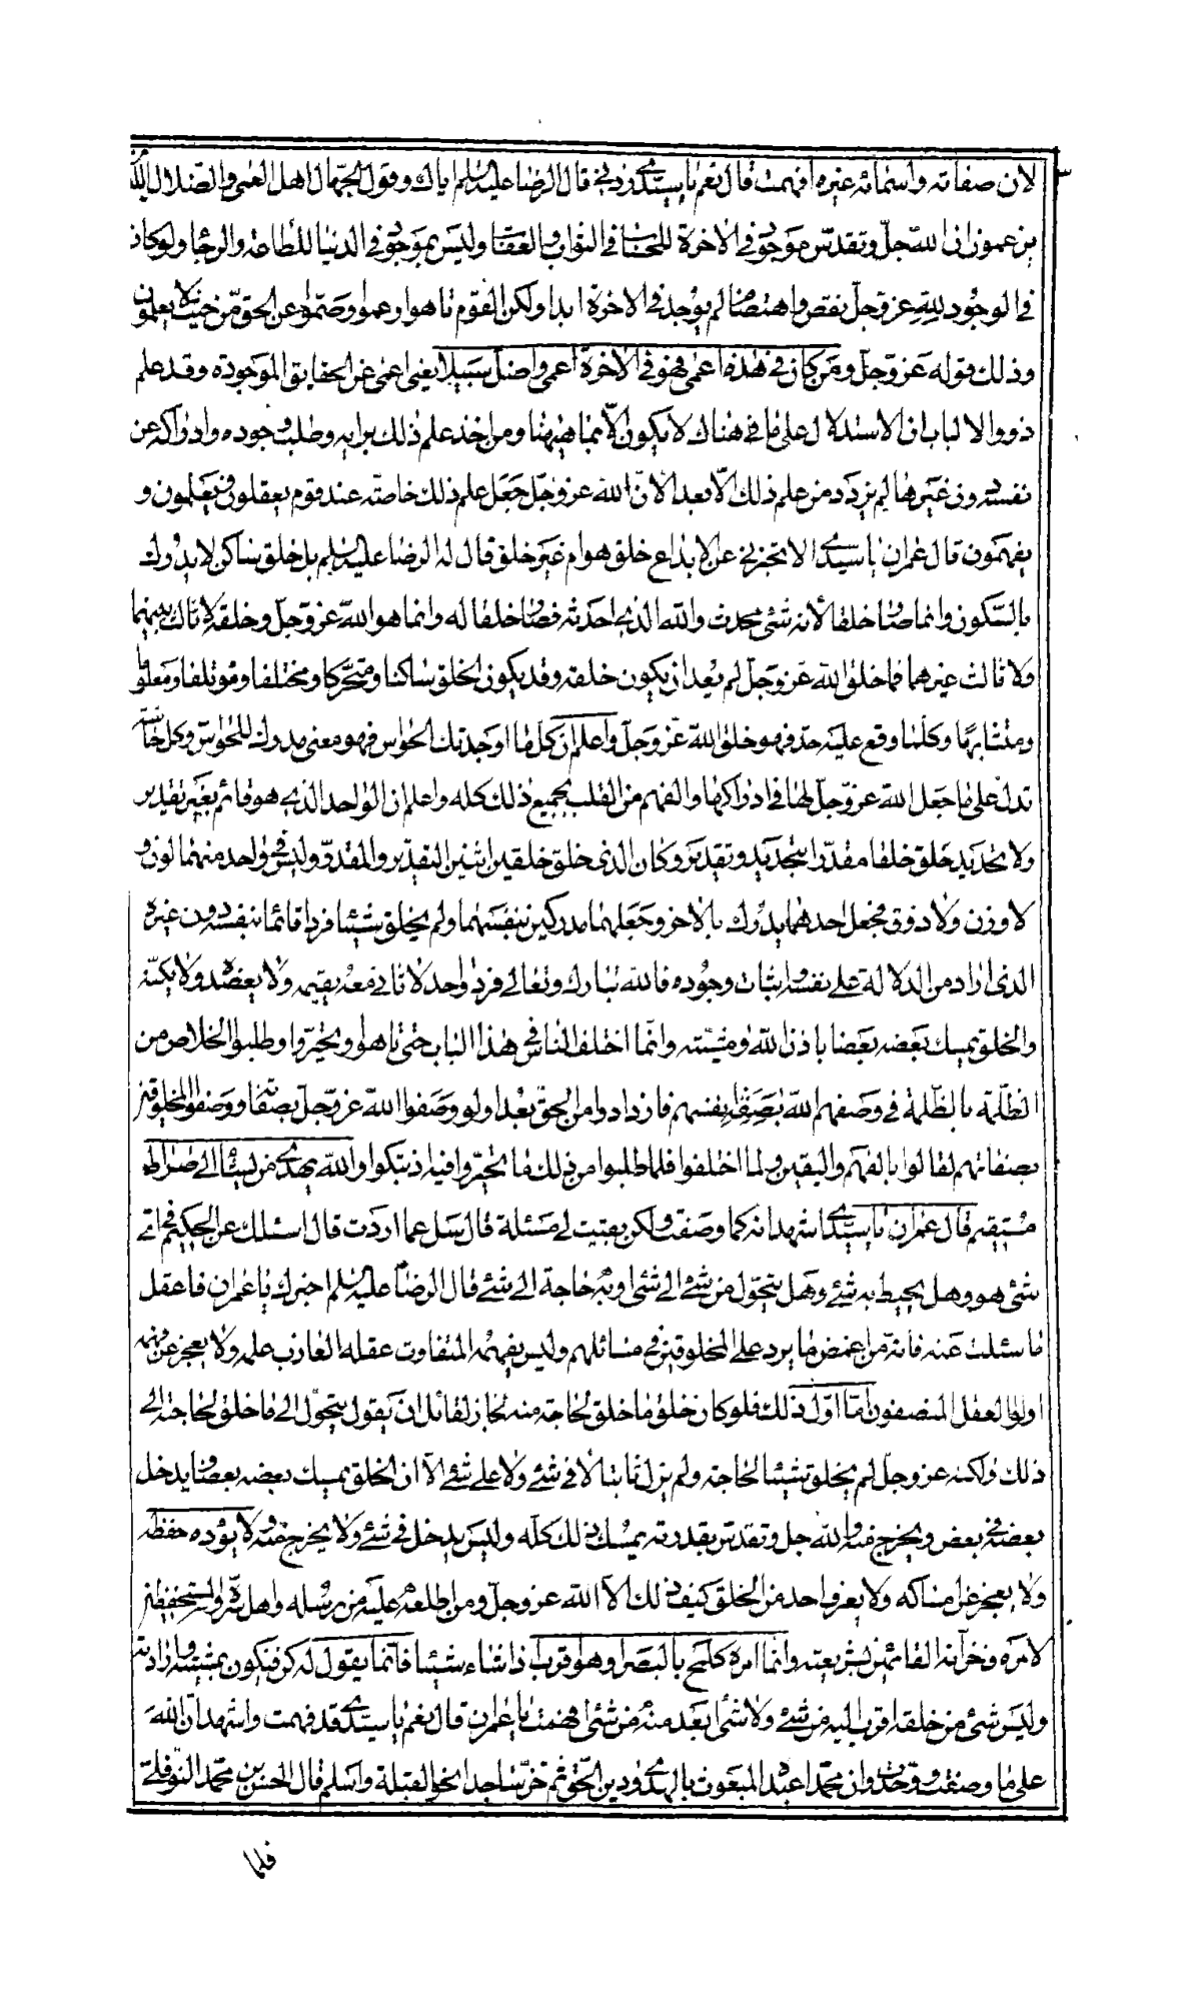 لان صفاته واسمائه غيره افهمت قال نعم يا سيدي زدني قال الرضا عليه السلم اياك وقول الجهال اهل العمى والضلال الذين
يزعمون ان الله جل وتقدس موجود في الاخرة للحساب في الثواب والعقاب وليس بموجود في الدنيا للطاعة والرجا ولو كان
في الوجود لله عز وجل نقص واهتضام لم يوجد في الاخرة ابدا ولكن القوم تاهوا وعموا وصموا عن الحق من حيث لا يعلمون
وذلك قوله عز وجل ومن كان في هذه اعمى فهو في الاخرة اعمى واضل سبيلا يعني اعمى عن الحقايق الموجودة وقد علم
ذووا الالباب ان الاستدلال على ما في هناك لا يكون الا بما هيهنا ومن اخذ علم ذلك برايه وطلب وجوده وادراكه عن
نفسه دون غيرها لم يزدد من علم ذلك الا بعدا لان الله عز وجل جعل علم ذلك خاصة عند قوم يعقلون ويعلمون و
يفهمون قال عمران يا سيدي الا تخبرني عن الابداع خلق هو ام غير خلق قال له الرضا عليه السلم بل خلق ساكن لا يدرك
بالسكون وانما صار خلقا لانه شئ محدث والله الذي احدثه فصار خلقا له وانما هو الله عز وجل وخلقه لا ثالث بينهما
ولا ثالث غيرهما فما خلق الله عز وجل لم يعد ان يكون خلقه وقد يكون الخلق ساكنا ومتحركا ومختلفا ومؤتلفا ومعلوما
ومتشابها وكلما وقع عليه حد فهو خلق الله عز وجل واعلم ان كل ما اوجدتك الحواس فهو معنى مدرك للحواس وكل حاسة
تدل على ما جعل الله عز وجل لها في ادراكها والفهم من القلب بجميع ذلك كله واعلم ان الواحد الذي هو قائم بغير تقدير
ولا تحديد خلق خلقا مقدرا بتحديد وتقدير وكان الذي خلق خلقين اثنين التقدير والمقدر وليس في واحد منهما لون و
لا وزن ولا ذوق فجعل احدهما يدرك بالاخر وجعلهما مدركين بنفسهما ولم يخلق شيئا فردا قائما بنفسه دون غيره
الذي اراد من الدلالة على نفسه واثبات وجوده فالله تبارك وتعالى فرد واحد لا ثاني معه يقيمه ولا يعضده ولا يكنه
والخلق يمسك بعضه بعضا باذن الله ومشيته وانما اختلف الناس في هذا الباب حتى تاهوا وتحيروا وطلبوا الخلاص من
الظلمة بالظلمة في وصفهم الله بصفة انفسهم فازدادوا من الحق بعدا ولو وصفوا الله عز وجل بصفاته ووصفوا المخلوقين
بصفاتهم لقالوا بالفهم واليقين ولما اختلفوا فلما طلبوا من ذلك ما تحيروا فيه ارتبكوا والله يهدي من يشاء الى صراط
مستقيم قال عمران يا سيدي اشهد انه كما وصفت ولكن بقيت لي مسئلة قال سل عما اردت قال اسئلك عن الحكيم في اي
شئ هو وهل يحيط به شئ وهل يتحول من شئ الى شئ او به حاجة الى شئ قال الرضا عليه السلم اخبرك يا عمران فاعقل
ما سئلت عنه فانه من اغمض ما يرد على المخلوقين في مسائلهم وليس يفهمه المتفاوت عقله العازب علمه ولا يعجز عن فهمه
اولوا العقل المنصفون اما اول ذلك فلو كان خلق ما خلق لحاجة منه لجاز لقائل ان يقول يتحول الى ما خلق لحاجته الى
ذلك ولكنه عز وجل لم يخلق شيئا لحاجة ولم يزل ثابتا لا في شئ ولا على شئ الا ان الخلق يمسك بعضه بعضا ويدخل
بعضه في بعض ويخرج منه والله جل وتقدس بقدرته يمسك ذلك كله وليس يدخل في شئ ولا يخرج منه ولا يؤده حفظه
ولا يعجز عن امساكه ولا يعرف احد من الخلق كيف ذلك الا الله عز وجل ومن اطلعه عليه من رسله واهل سره والمستحفظين
لامره وخزانه القائمين بشريعته وانما امره كلمح بالبصر او هو اقرب اذا شاء شيئا فانما يقول له كن فيكون بمشيته وارادته
وليس شئ من خلقه اقرب اليه من شئ ولا شئ ابعد منه من شئ افهمت يا عمران قال نعم يا سيدي قد فهمت واشهد ان الله
على ما وصفت ووحدت وان محمدا عبده المبعوث بالهدى ودين الحق ثم خر ساجدا نحو القبلة واسلم قال الحسن بن محمد النوفلي
فلما